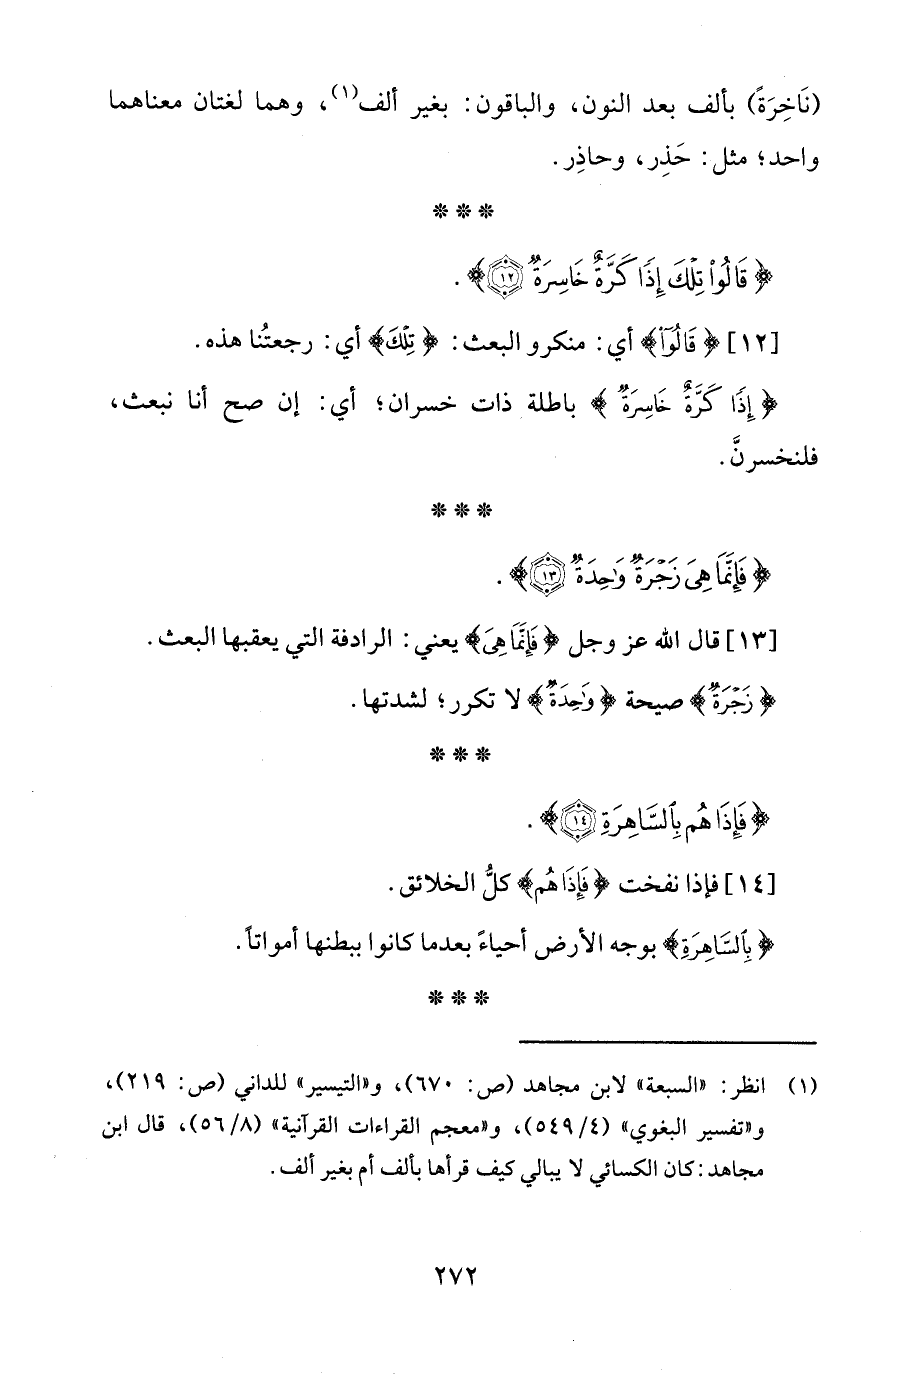 (نَاخِرَةً) بألف بعد النون، والباقون: بغير ألف(١)، وهما لغتان معناهما
واحد؛ مثل: حَذِر، وحاذِر.
* * *
﴿قَالُوا۟ تِلْكَ إِذًا كَرَّةٌ خَاسِرَةٌ ١٢﴾.
[١٢] ﴿قَالُوٓا۟﴾ أي: منكرو البعث: ﴿تِلْكَ﴾ أي: رجعتُنا هذه.
﴿إِذًا كَرَّةٌ خَاسِرَةٌ﴾ باطلة ذات خسران؛ أي: إن صح أنا نبعث،
فلنخسرنَّ.
* * *
﴿فَإِنَّمَا هِىَ زَجْرَةٌ وَٰحِدَةٌ ١٣﴾.
[١٣] قال الله عز وجل ﴿فَإِنَّمَا هِىَ﴾ يعني: الرادفة التي يعقبها البعث.
﴿زَجْرَةٌ﴾ صيحة ﴿وَٰحِدَةٌ﴾ لا تكرر؛ لشدتها.
* * *
﴿فَإِذَا هُم بِٱلسَّاهِرَةِ ١٤﴾.
[١٤] فإذا نفخت ﴿فَإِذَا هُم﴾ كلُّ الخلائق.
﴿بِٱلسَّاهِرَةِ﴾ بوجه الأرض أحياءً بعدما كانوا ببطنها أمواتاً.
* * *
(١) انظر: «السبعة» لابن مجاهد (ص: ٦٧٠)، و«التيسير» للداني (ص: ٢١٩)،
و«تفسير البغوي» (٤/ ٥٤٩)، و«معجم القراءات القرآنية» (٨/ ٥٦)، قال ابن
مجاهد: كان الكسائي لا يبالي كيف قرأها بألف أم بغير ألف.
٢٧٢